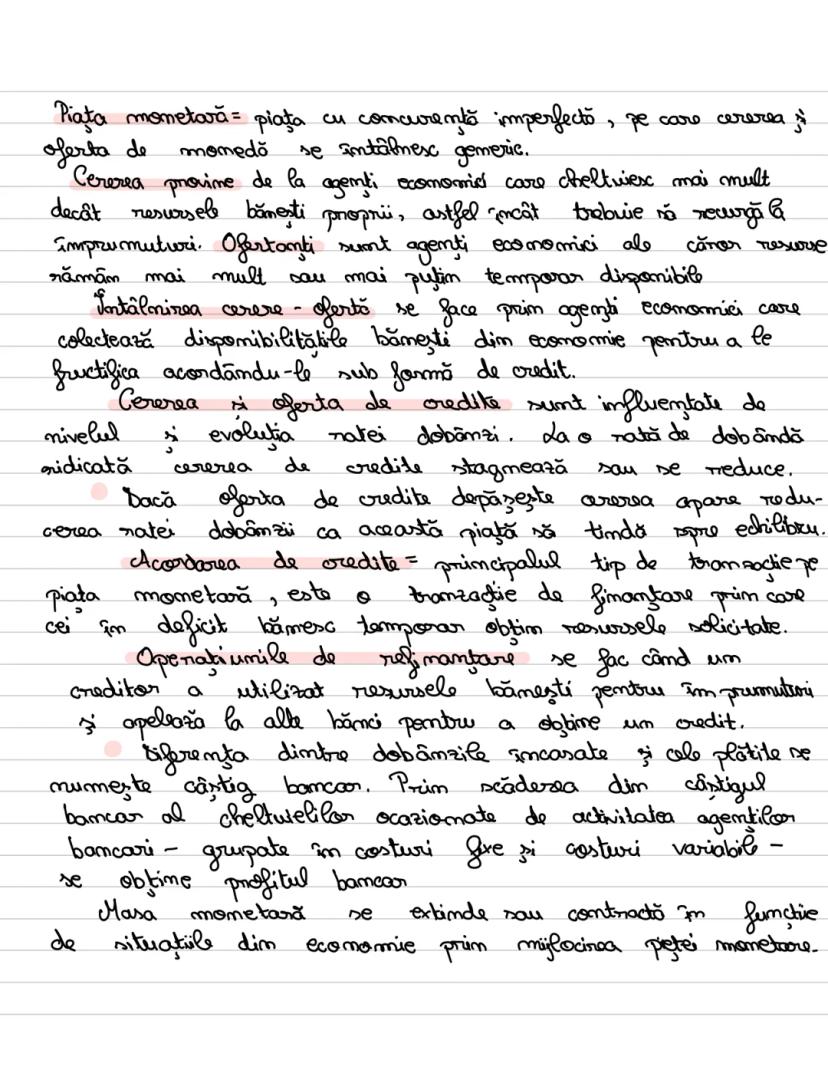 Piața monetară = piața cu concurență imperfectă, pe care cererea și
oferta de monedă se întâlnesc generic.
Cererea provine de la agenți economici care cheltuiesc mai mult
decât resursele bănești proprii, astfel încât trebuie să recurgă la
împrumuturi. Ofertanți sunt agenți economici ale căror resurse
rămân mai mult sau mai puțin temporar disponibile
Întâlnirea cerere - ofertă se face prin agenți economici care
colectează disponibilitățile bănești din economie pentru a le
fructifica acordându-le sub formă de credit.
Cererea și oferta de credite sunt influențate de
nivelul și evoluția ratei dobânzi. La o rată de dobândă
ridicată cererea de credite stagnează sau se reduce.
Dacă oferta de credite depășește cererea apare redu-
cerea ratei dobânzii ca această piață să tindă spre echilibru.
Acordarea de credite = principalul tip de tranzacție pe
piața monetară, este o tranzacție de finanțare prin care
cei în deficit bănesc temporar obțin resursele solicitate.
Operațiunile de refinanțare se fac când un
creditor a utilizat resursele bănești pentru împrumuturi
și apelează la alte bănci pentru a obține un credit.
Diferența dintre dobânzile încasate și cele plătite se
numește câștig bancar. Prin scăderea din câștigul
bancar al cheltuielilor ocazionate de activitatea agenților
bancari - grupate în costuri fixe și costuri variabile -
se obține profitul bancar
Masa monetară se extinde sau contractă în funcție
de situațiile din economie prin mijlocirea pieței monetare.